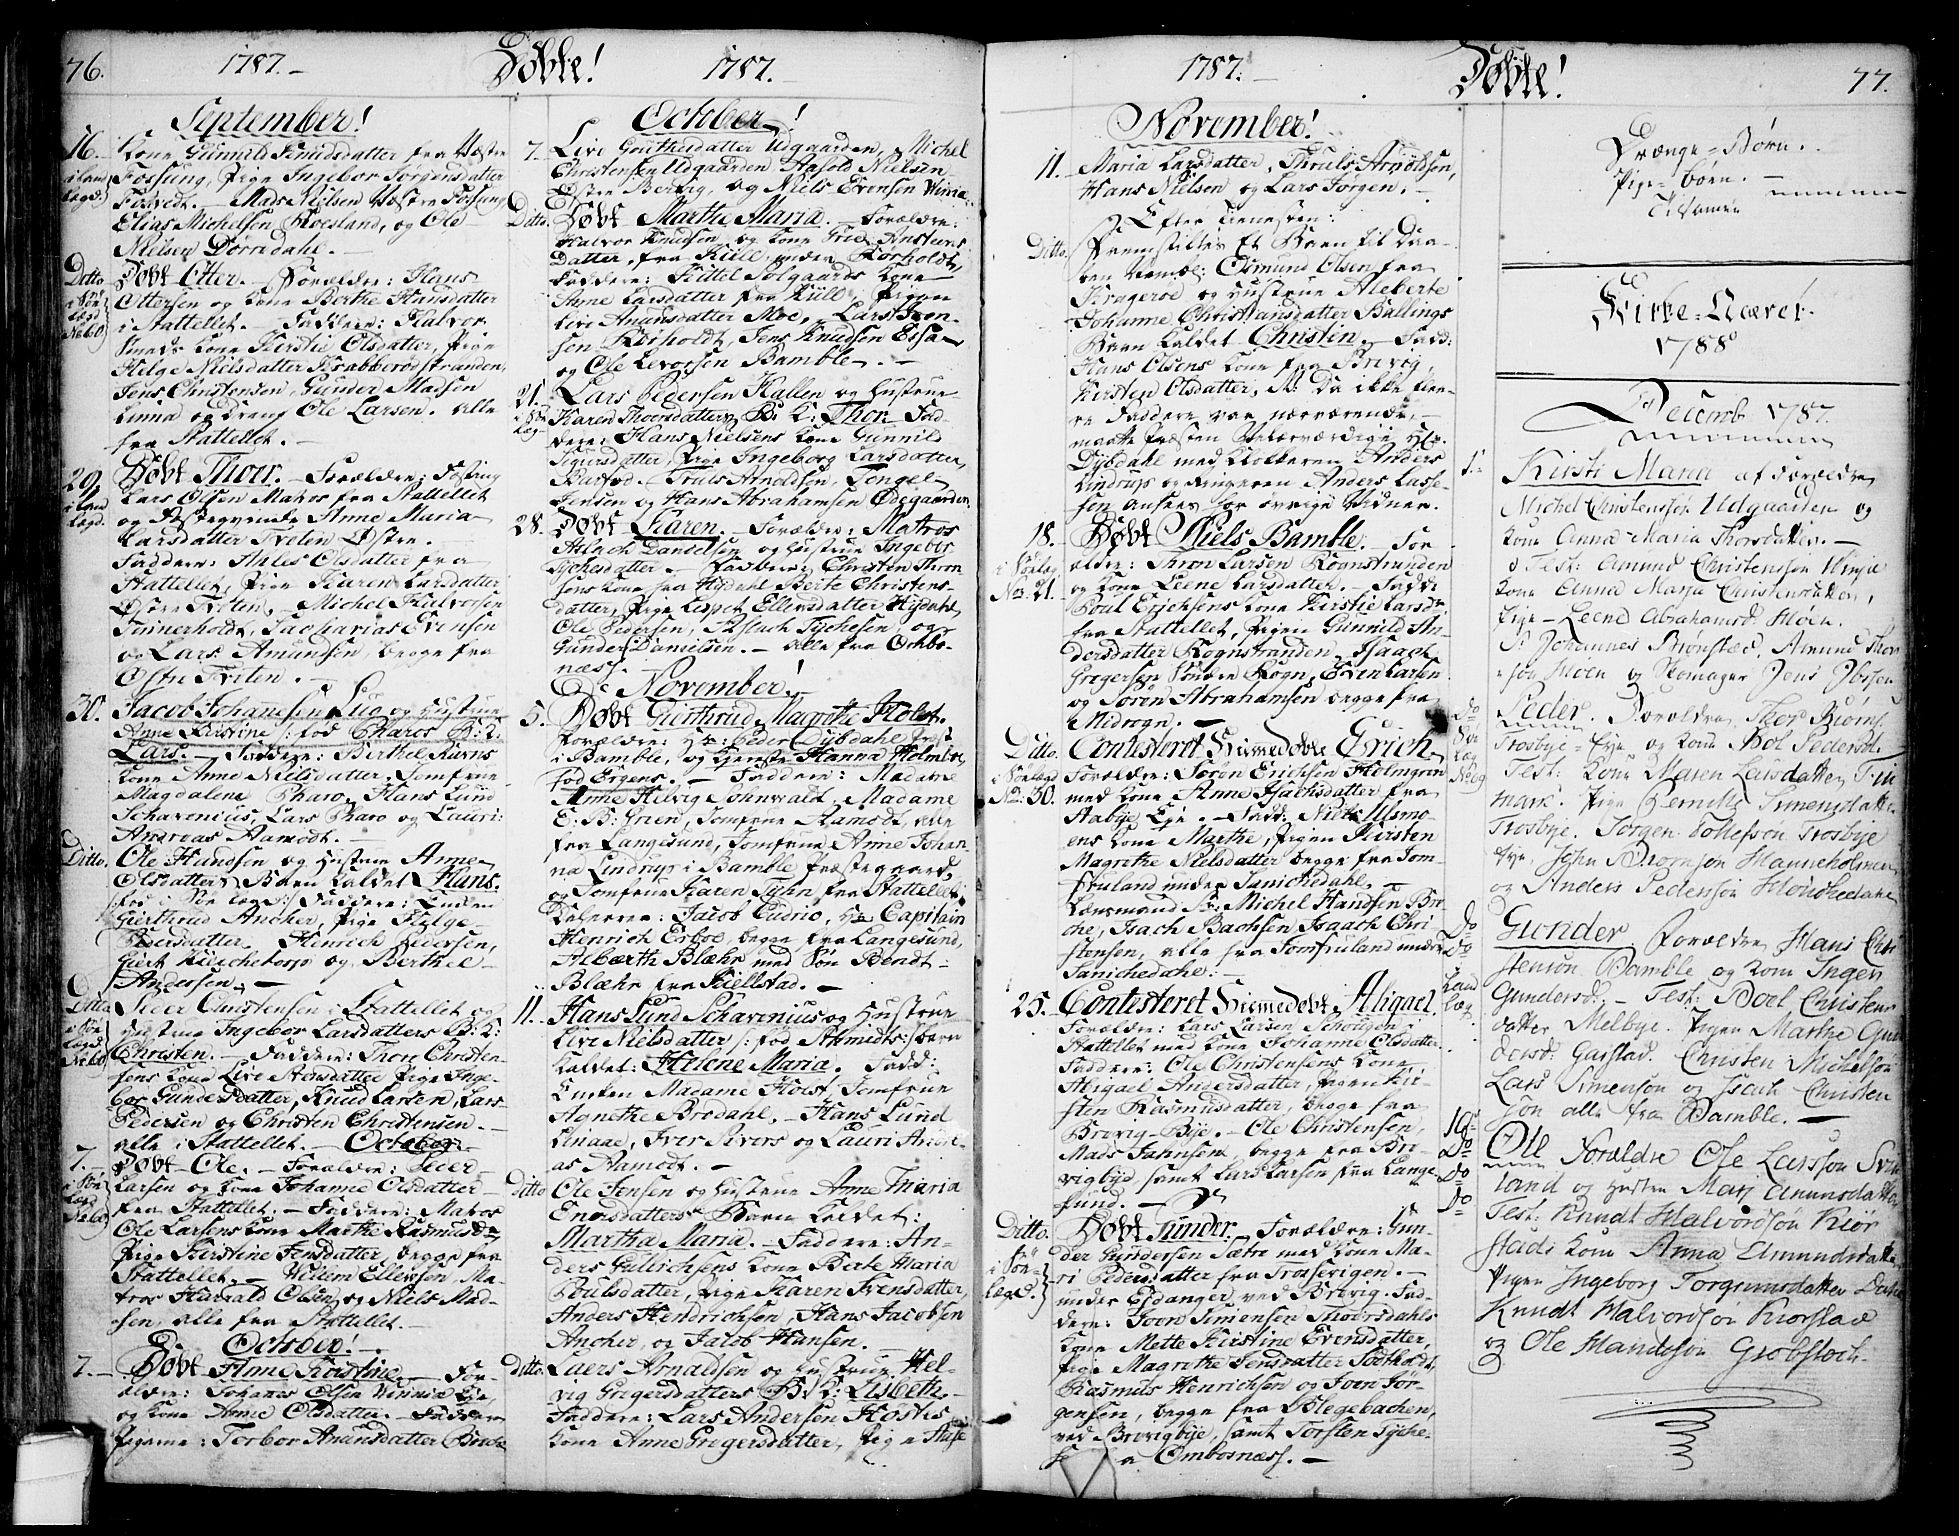 76. 1787. Døbte! 1787.
September!
16. Kone Gunnild Knudsdatter fra Wæstre
Fossung, Pige Ingebor Jørgensdatter
Fosvedt. Mads Nielsen Wæstre Fossung
Elias Michelsen Roesland, og Ole
Nielsen Dørredahl.
Ditto Døbt Otter. Forældre: Hans
Ottersen og Kone Berthe Hansdatter
i Stattellet. Faddere: Halvor
Smeds Kone Kirstie Olsdatter, Pige
Helge Nielsdatter Krabberødstranden,
Jens Christensen, Gunder Madsen
og Dreng Ole Larsen. alle
fra Stattellet.
29. Døbt Thoer. Forældre:
Lars Olsen Matros fra Stattellet
og Anne Maria
Larsdatter Tveten Østre.
Faddere: Ahles Olsdatter fra
Stattellet, Pige Karen Larsdatter
Østre Tveten, Michel Halvorsen
Tinnerholdt, Zacharias Evensen
og Lars Amundsen, begge fra
Østre Tveten.
30. Jacob Johannesen Luo og Hustrue
Anne Kirstine /: fød Pharos B: K:
Lars. Faddere: Berthel Kurns
Kone Anne Nielsdatter, Jomfrue
Magdalena Pharo, Hans Lund
Scharenius, Lars Pharo og Lauri:
Andreas Aamodt.
Ditto. Ole Handsen og Hustrue Anne
Olsdatters Barn kaldet Hans.
Faddere: Enken
Gierthrud Ancher, Pige Helge
Pedersdatter. Henrich Pedersen,
Giert og Berthel
Andersen.
Ditto Seier Christensen i Stattellet og
Hustrue Ingebor Larsdatters B: K:
Christen. Faddere: Thore Christen-
sens Kone Live Stensdatter Pige Inge-
bor Gundersdatter, Knud Larsen, Lars
Pedersen og Christen Christensen.
alle i Stattellet. October.
7. Døbt Ole. Forældre: Seier
Larsen og Kone Johanne Olsdatter
fra Stattellet. Faddere: Matros
Ole Larsens Kone Marthe Rasmusd:
Pige Kirstine Jensdatter, begge fra
Stattellet. Willem Ellevsen, Ma-
tros Harrald Olsen og Niels Mad-
sen, alle fra Stattellet.
October!
7. Døbt Anne Kirstine. For-
ældre: Johanes Olsen
og Kone Anne Olsdatter. Faddere
Pigerne: Torbor Anunsdatter
October!
7. Live Gouttesdatter Udgaarden, Michel
Christensen Udgaarden Aasold Nielsen
Østre Bervig, og Niels Evensen
Ditto. Døbt Marthe Maria. Forældre:
Halvor Knudsen og Kone Groe Anstens
Datter, fra Kiill under Rørholdt,
Faddere: Kittel Solgaards Kone
Anne Larsdatter fra Kiill Pigen
Live Anunsdatter Moe, Lars Sven-
sen Rørholdt, Jens Knudsen Essa
og Ole Levorsen Bamble.
21. Lars Pedersen Hallen og Hustrue
Karen Thoersdatters B: K: Thor. Fad-
dere: Hans Nielsens Kone Gunnild
Sigursdatter, Pige Ingeborg Larsdatter,
Bustød. Truls Arnoldsen, Tengel
Jensen og Hans Abrahamsen Ødegaarden.
28. Døbt Karen. Forældre: Matros
Aslach Danielsen og Hustrue Ingebor
Tychesdatter. Faddere: Christen Thron
sens Kone fra Hydahl Berte Christens-
datter, Pige Lispet Ellevsdatter Hydahl,
Ole Pedersen, Aslach Tychesen og
Gunder Danielsen. Alle fra Ombo-
næss.
November!
5. Døbt Gierthrud Magrethe Holst.
Forældre: Hr: Peder Dybdahl Præst
i Bamble, og Hanna Holmbo
fød Ergens. Faddere: Madame
Anne Helvig Sohnwaldt, Madame
E: B: Grien, Jomfrue Aamodt, alle
fra Langesund, Jomfrue Anne Johan-
na Lindrup i Bamble Præstegaard,
og Jomfrue Karen Juhn fra Stattellet.
Jacob Cudrio, Hr Capitain
Henrich Erboe, begge fra Langesund,
Albærth Blæhr med Søn Bendt
Blæhr fra Kiellstad.
11. Hans Lund Scharenius og Hustrue
Live Nielsdatter /: fød Schmidts: Barn
kaldet: Helene Maria. Fadd:
Enken Madame Holst Jomfrue
Agnethe Brodahl. Hans Lund
Linaae, Iver Kivers og Lauri Andre-
as Aamodt.
Ditto Ole Jensen og Hustrue Anne Maria
Enersdatters Barn kaldet:
Martha Maria. Faddere: An-
ders Gullichsens Kone Berte Maria
Poulsdatter, Pige Karen Svensdatter,
Anders Hendrichsen, Hans Jacobsen
Ancher, og Jacob Hansen.
Ditto. Laers Arnaldsen og Hustrue Hel-
vig Gregersdatters B: K: Lisbeth.
Faddere: Lars Andersen Kostis
Kone Anne Gregersdatter, Pige
1787. Døbte! 77.
November!
11. Maria Larsdatter, Thruls Arnoldsen,
Hans Nielsen og Lars Jørgen.
Efter Tienesten:
Ditto. Fremstilles Et Barn til Daa-
ben Osmund Olsen fra
Kragerøe og Hustrue Aleberte
Johanne Christiansdatter Ballings
Barn kaldet Christin. Fadd:
Hans Olsens Kone fra Brevig,
Kirsten Olsdatter, Da ikke flee-
re Faddere var nærværende,
maatte Præsten Velærværdige Hr.
Dybdahl med Klokkeren Anders
Lindrup og Ringeren Anders Lasse-
sen ansees for øvrige Vidner.
18. Døbt Niels Bamble. For
i Sørlag ældre: Thron Larsen Rognstranden
No: 21. og Kone Leene Larsdatter. Fadd:
Poul Erichsens Kone Kirstie Larsd:
fra Stattellet, Pigen Gunnild An-
dersdatter Rognstranden, Isaach
Gregersen Søndre Rogn, Even Larsen
og Søren Abrahamsen begge fra
Midrogn.
Ditto. Contesteret Hiemedøbte Erich
Forældre: Søron Erichsen Holmgren
No: 30. med Kone Anne Isachsdatter fra
Stabye Eye. Fadd: Niels Ulsmo-
ens Kone Marthe, Pigen Kirsten
Magrethe Nielsdatter begge fra Jom-
fruland under Sanichedahl,
Lænsmand Sr. Michel Handsen Bro-
che, Isach Bachsen Isaach Chri-
stensen, alle fra Jomfruland under
Sanichedahl.
25. Contesteret Hiemedøbt Abigael.
Forældre: Lars Larsen Schougen i
Stattellet med Kone Johanne Olsdatter.
Faddere: Ole Christensens Kone
Abigael Andersdatter, Pigen Kir-
sten Rasmusdatter, begge fra
Brevig-Bye. Ole Christensen,
Mads Jahnsen, begge fra Bre-
vigbye samt Lars Larsen fra Lange
sund.
Ditto. Døbt Gunder. Forældre: Gun-
der Gundersen Sætre med Kone Ma-
ri Pedersdatter fra Trosevigen.
under Eidanger ved Brevig. Fad-
dere: Joen Simensen Thorsdahls
Kone Mette Kirstine Evensdatter,
Pige Magrethe Jensdatter
Rasmus Henrichsen og Joen Jør-
gensen, begge fra Blegebachen,
ved Brevigbye, samt Torsten Tyche-
Ombosnæss.
Drænge-Børn.
Pige-børn.
Tilsamen
Kirke-Næret
1788
Decemb 1787.
1. Kirsti Maria af Forældre
Michel Christensøn Udgaarden og
Kone Anna Maria Thorsdatter.
Test: Amund Christensøn Vinje
Kone Anna Marja Christensdatter,
Pige Leene Abrahamsd. Moen.
Johannes Brønsted, Amund Thor
søn Moen og Skomager Jens Ibsen
Do Peder. Forældre Thor Biørns:
Trosbye-Eye og Kone Abol Pedersd.
Test: Kone Maren Larsdatter Fin
mark. Pige Pernille Simensdatter
Trosbye. Jørgen Tollefsøn Trosbye
Eye, John Thomsøn Manneholmen
og Anders Pedersøn Hönschedahl
Do Gunder Forældre Hans Chri
stensøn Bamble og Kone Inger
Gundersd. Test: Boel Christens
datter Melbye. Pigen Marthe Gun
dersd: Garstad. Christen Michelsøn
Lars Simensøn og Isach Christen
søn alle fra Bamble.
16 Ole Forældre Ole Larssøn
land og Hustru Marj Amunsdatter
Test: Knudt Halvordsøn Kiør
stads Kone Anna Amundsdatter
Pigen Ingeborg Torgrimsdatter
Knudt Halvordsøn Kiørstad
og Ole Handsøn Grobstoch.